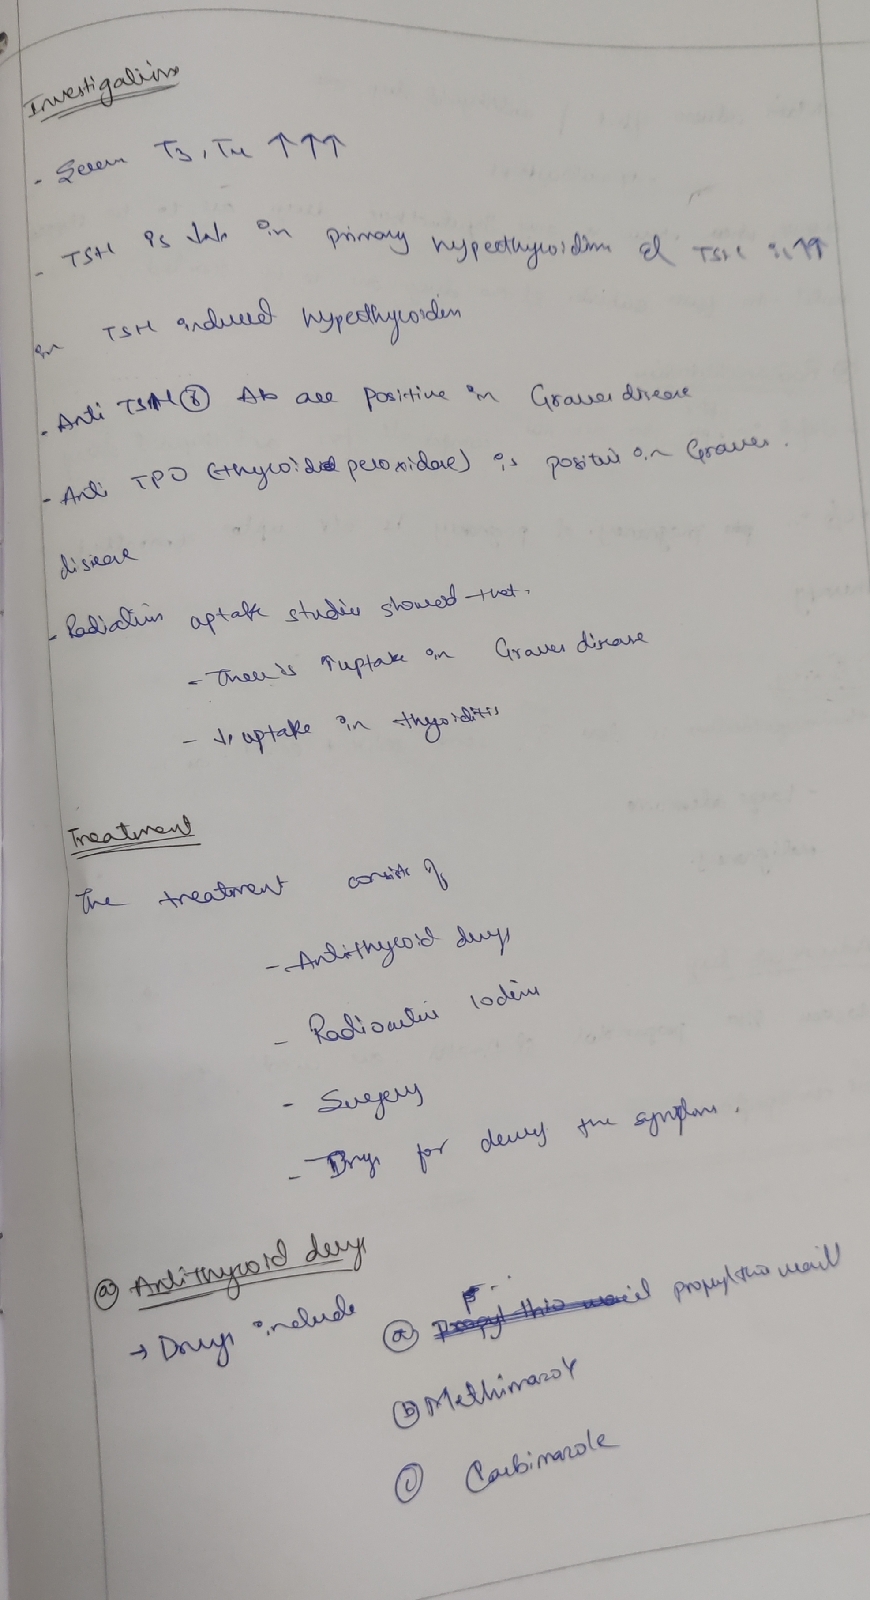 Investigations
- Serum T3, T4 ↑↑↑
- TSH is ↓↓↓ in primary hyperthyroidism & TSH is ↑↑
in TSH induced hyperthyroidism
- Anti TSH Ⓡ Ab are positive in Graves disease
- Anti TPO (thyroid peroxidase) is positive in Graves.
disease
- Radiation uptake studies showed that.
- There is ↑uptake in Graves disease
- ↓ uptake in thyroiditis
Treatment
The treatment consists of
- Antithyroid drugs
- Radioactive Iodine
- Surgery
- Drugs for the symptoms.
ⓐ Antithyroid drugs
→ Drugs include ⓐ propylthiouracil
ⓑ Methimazole
ⓒ Carbimazole